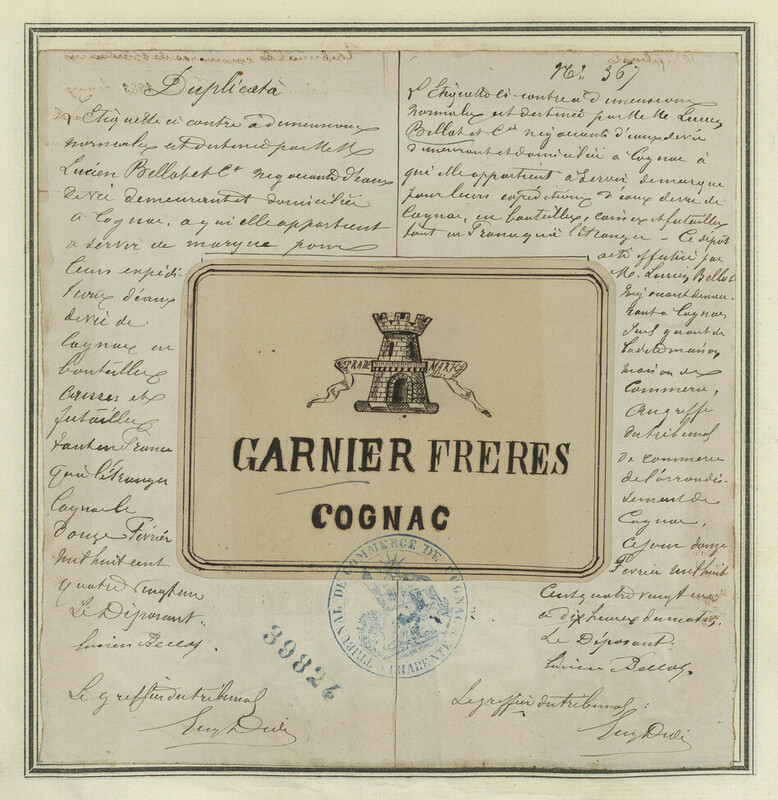 Duplicata
L'Etiquette ci contre à dimensions
normales est destinée par MM
Lucien Bellot et Cie négociants d'eaux
de vie demeurant et domiciliée
à Cognac, à qui elle appartient
à servir de marque pour
leurs expédi
tions d'eaux
de vie de
Cognac en
bouteilles
caisses et
futailles
tant en France
qu'à l'étranger
Cognac le
douze Février
mil huit cent
quatre vingt un
Le Déposant.
Lucien Bellot.
Le greffier du tribunal
No. 367
L'Etiquette ci-contre à dimensions
normales est destinée par MM Lucien
Bellot et Cie négociants d'eaux de vie
demeurant et domiciliée à Cognac à
qui elle appartient à servir de marque
pour leurs expéditions d'eaux de vie de
Cognac, en bouteilles, caisses et futailles
tant en France qu'à l'étranger - Ce dépôt
a été effectué par
M. Lucien Bellot
négociant demeu-
rant à Cognac,
de la dite maison
maison de
Commerce,
au greffe
du tribunal
de commerce
de l'arrondis-
sement de
Cognac,
ce jour douze
Février mil huit
cent quatre vingt un
à dix heures du matin.
Le Déposant.
Lucien Bellot.
Le greffier du tribunal:
TRADE MARK
GARNIER FRERES
COGNAC
TRIBUNAL DE COMMERCE DE COGNAC
CHARENTE
39824